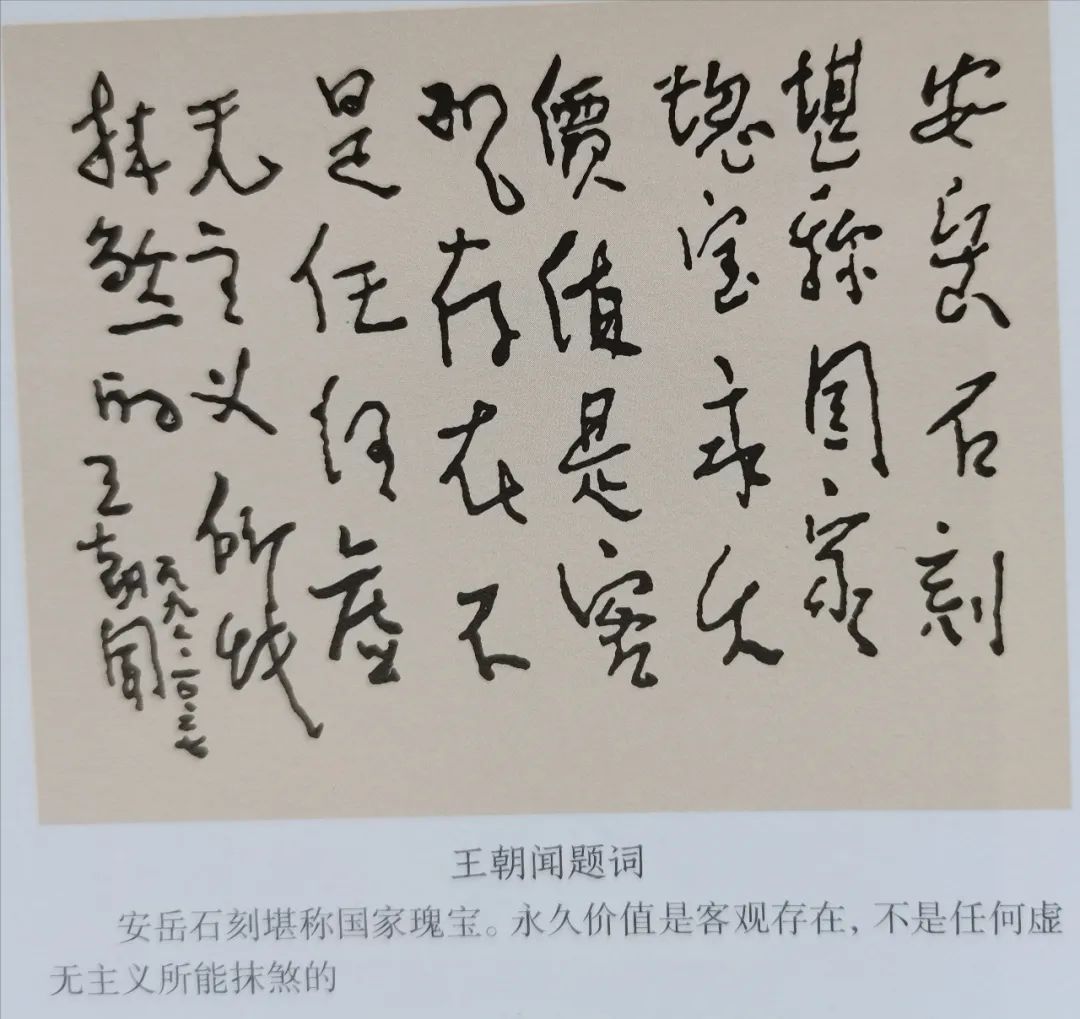 安岳石刻
堪称国家
瑰宝永久
價值是客
观存在不
是任何虚
无主义所能
抹煞的王朝闻
一九九二.一〇.二七
王朝闻题词
安岳石刻堪称国家瑰宝。永久价值是客观存在，不是任何虚
无主义所能抹煞的